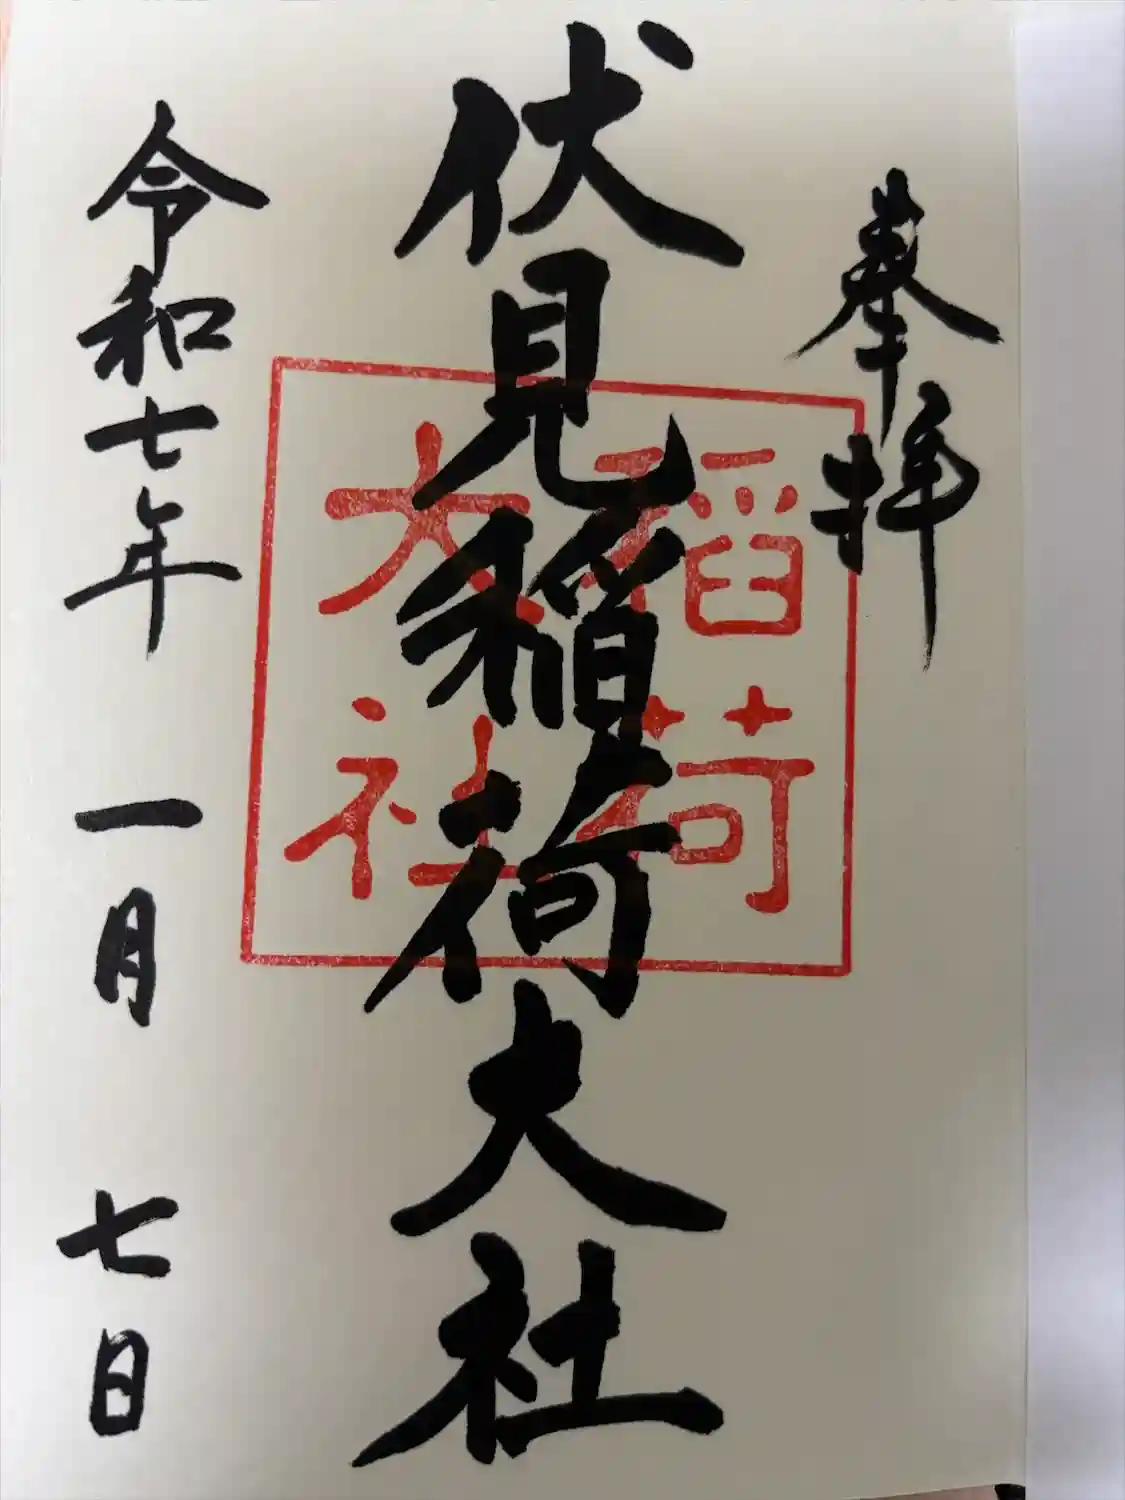 奉拝
伏見稲荷大社
稲荷
大社
令和七年一月七日